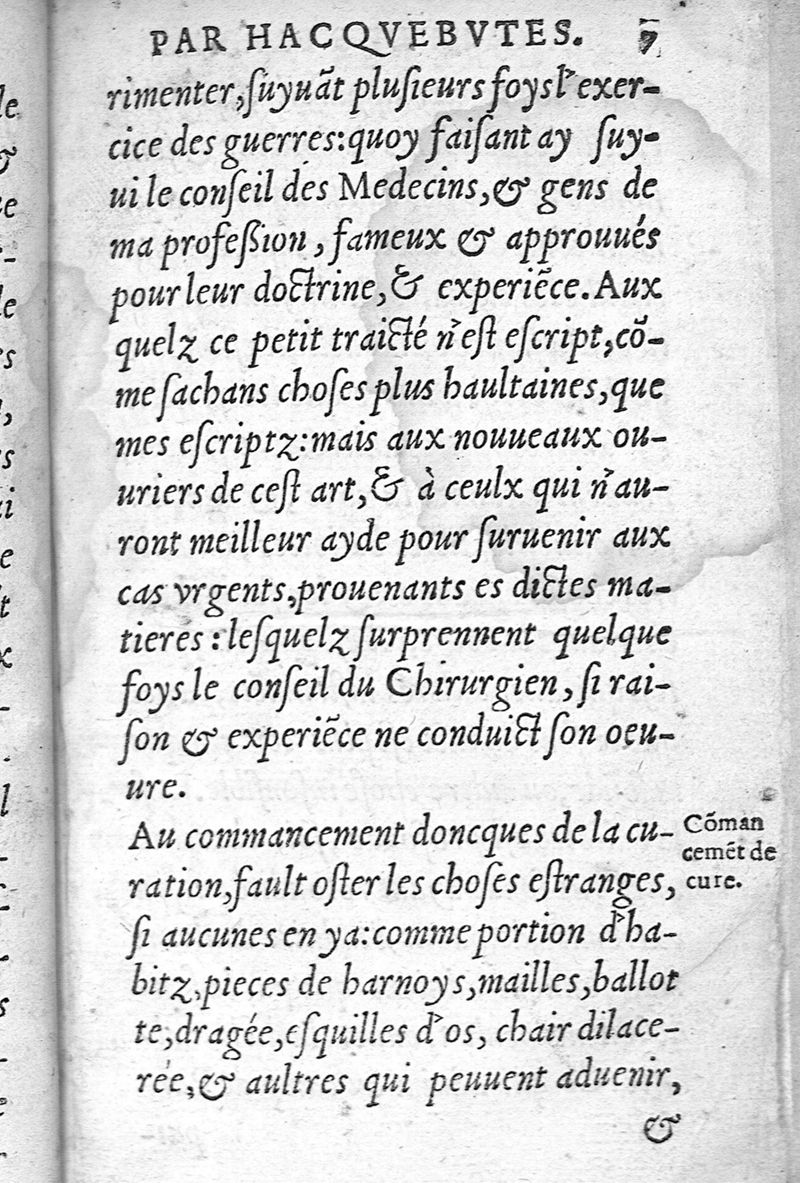 PAR HACQVEBVTES. 7
rimenter, ſuyuãt pluſieurs foys l'exer-
cice des guerres: quoy faiſant ay ſuy-
ui le conſeil des Medecins, & gens de
ma profeßion, fameux & approuués
pour leur doctrine, & experiẽce. Aux
quelz ce petit traicté n'eſt eſcript, cõ-
me ſachans choſes plus haultaines, que
mes eſcriptz: mais aux nouueaux ou-
uriers de ceſt art, & à ceulx qui n'au-
ront meilleur ayde pour ſuruenir aux
cas vrgents, prouenants es dictes ma-
tieres: leſquelz ſurprennent quelque
foys le conſeil du Chirurgien, ſi rai-
ſon & experiẽce ne conduict ſon oeu-
ure.
Au commancement doncques de la cu-
ration, fault oſter les choſes eſtranges,
ſi aucunes en ya: comme portion d'ha-
bitz, pieces de harnoys, mailles, ballot
te, dragée, eſquilles d'os, chair dilace-
rée, & aultres qui peuuent aduenir,
&
Cõman
cemẽt de
cure.